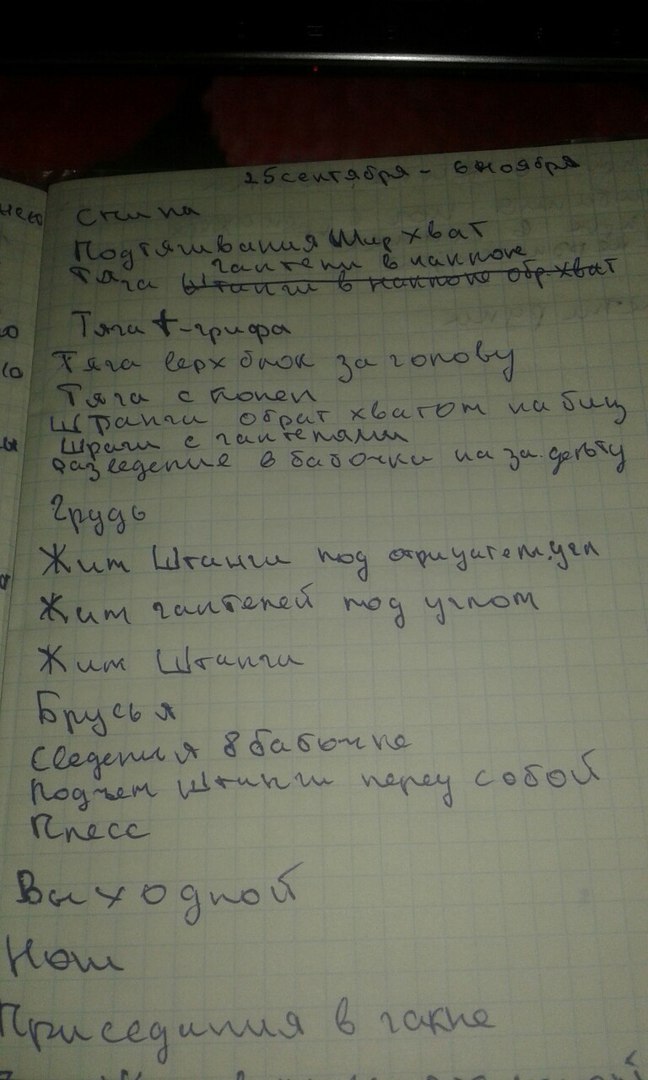 25 сентября - 6 ноября
Спина
Подтягивания Шир хват
гантели в наклоне
Тяга штанги в наклоне обр. хват
Тяга т-грифа
Тяга верх блок за голову
Тяга с колен
Штанги обрат хватом на биц
Шраги с гантелями
разведение в бабочки на за. дельту
Грудь
Жим Штанги под отрицател. угл
Жим гантелей под углом
Жим Штанги
Брусья
Сведения в бабочке
Подъем Штанги перед собой
Пресс
Выходной
Ноги
Приседания в гакке